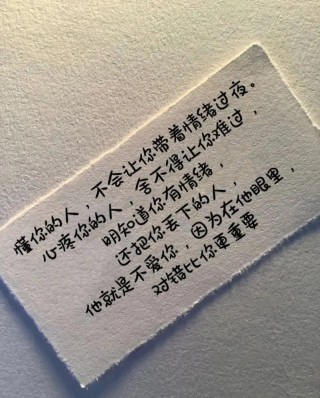 懂你的人，不会让你带着情绪过夜。
心疼你的人，舍不得让你难过，
明知道你有情绪，
还把你丢下的人，
他就是不爱你，因为在他眼里，
对错比你更重要